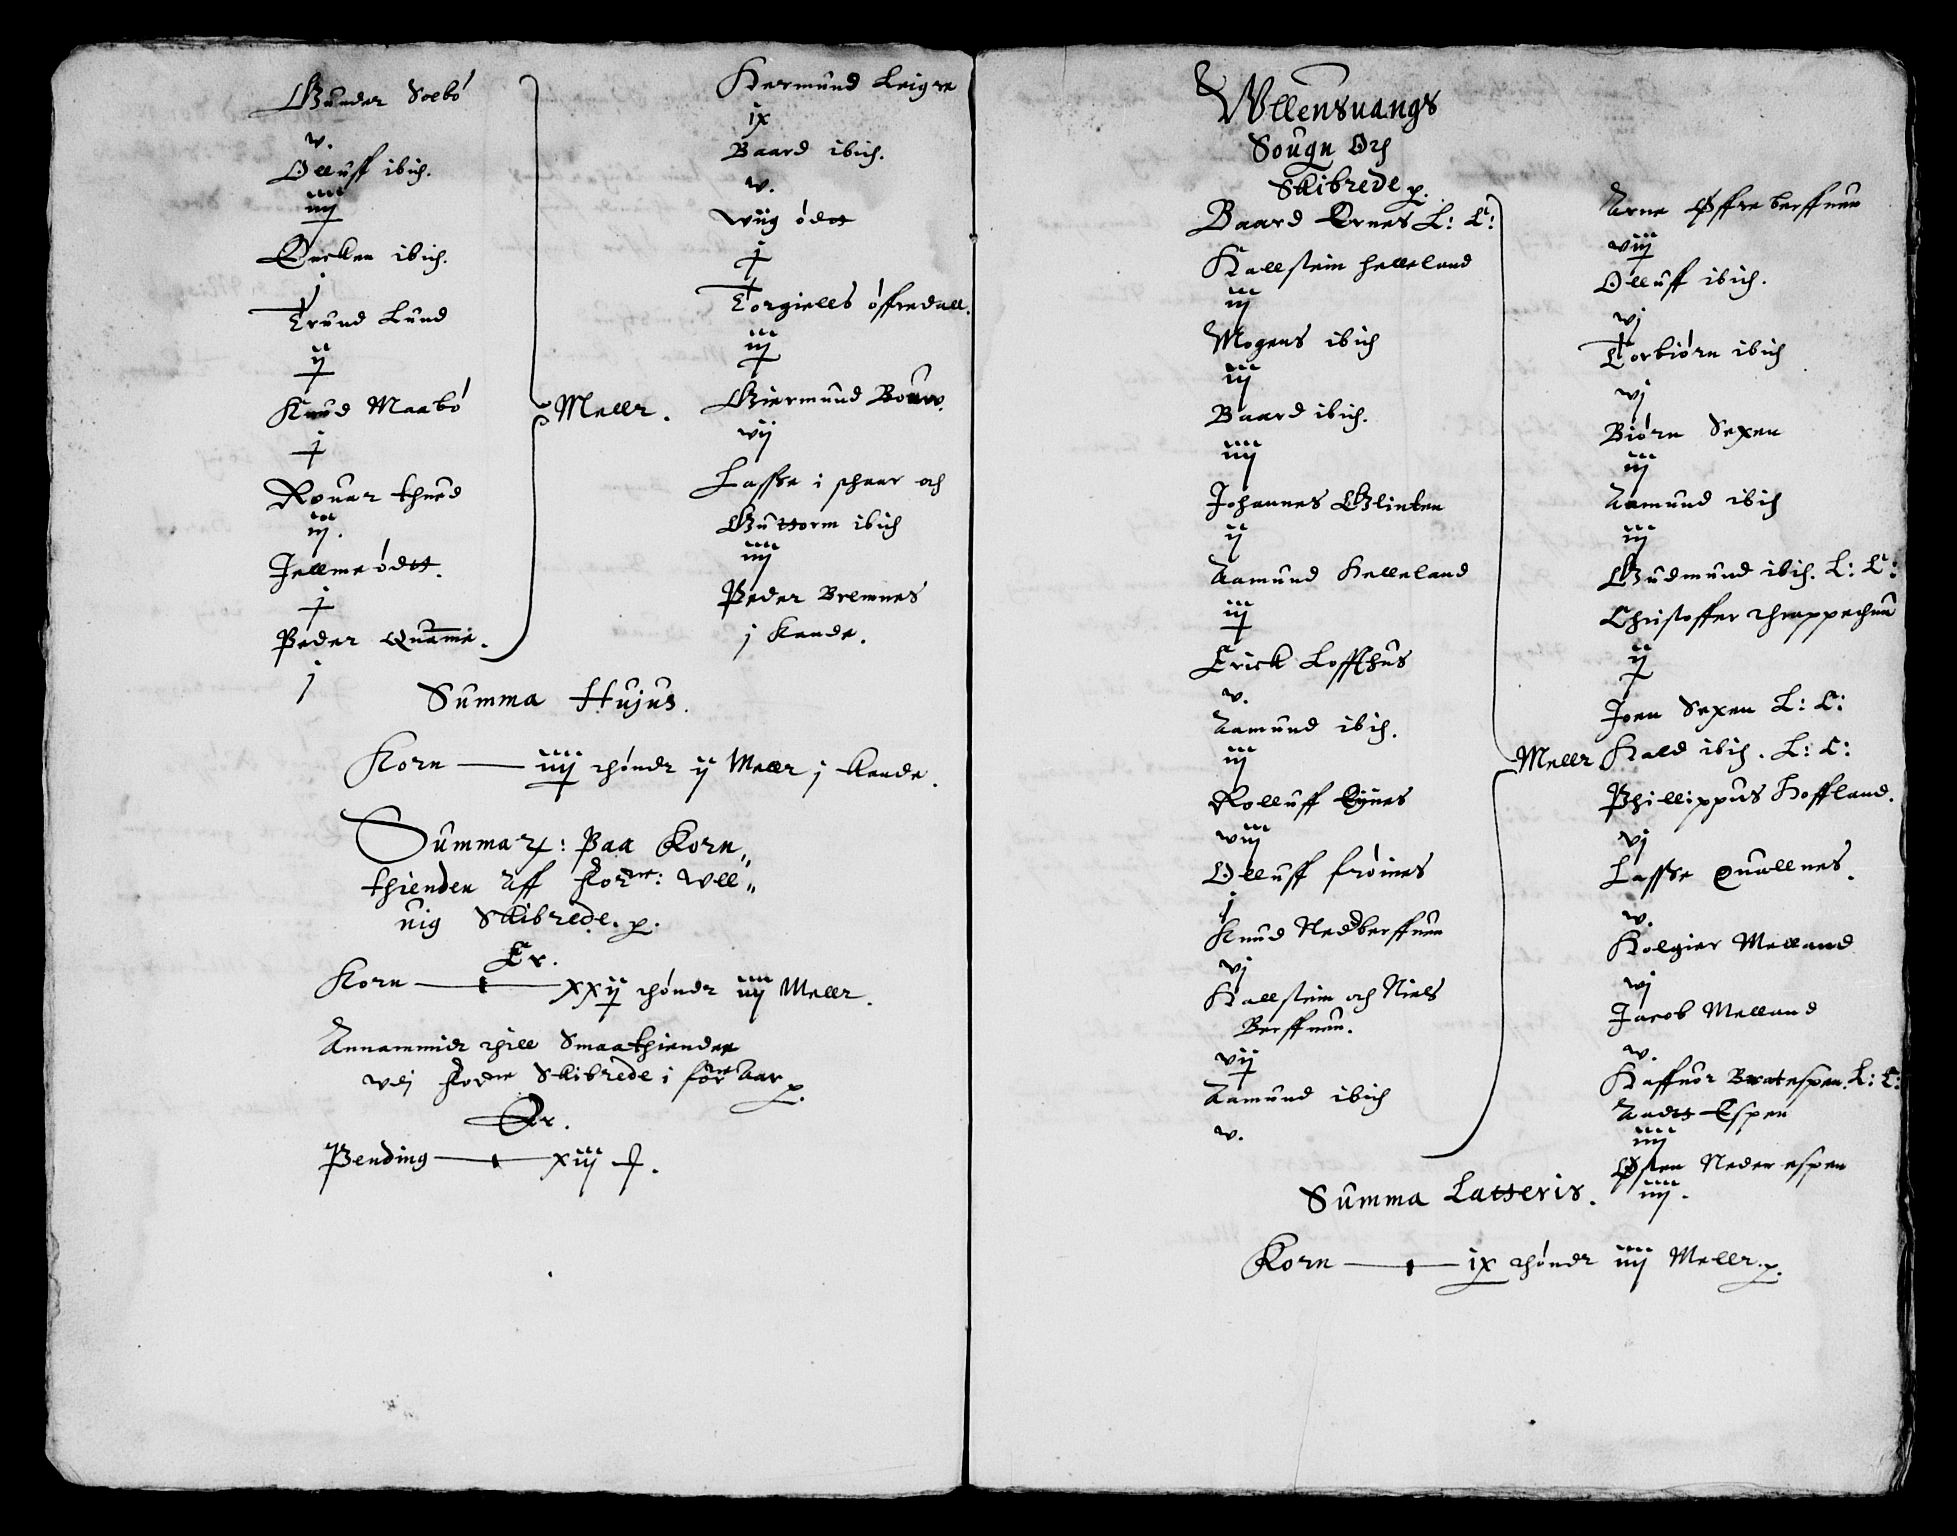 Gunder Soebó
v.
Olluff ibid.
iiij
Encken ibid.
j
Trund Lund
ij
Knud Maabó
j
Rouar thued
iij.
Jellme ódtt.
j
Peder Quamme.
j
Mellr.
Hermund Leigre
ix
Baard ibid.
v.
Wiig ódtt
j
Torgiells óffredall.
iij
Giermund Bouw.
vij
Lasse i schaar och
Guttorm ibid
iiij
Peder Bremnes
j Kande.
Summa Hujus.
Korn — iiij thóndr ij Mellr j kande.
Summar: Paa Korn„
thienden Aff forne: Wll„
uig Skibrede. p.
Er.
Korn — xxij thóndr iiij Mellr.
Annammidt thill Smaathienden
vdj forne Skibrede i forne Aar p.
Er.
Pending — xiij
Wllensuangs
Sougn Och
Skibrede p.
Baard Ernes L: C:
Kallstein helleland
iij
Mogens ibid
iij
Baard ibid.
iiij
Johannes Glinten
ij
Aamund Helleland
iij
Erick Loffthus
v.
Aamund ibid.
iij
Rolluff Eÿnes
viij
Olluff fróines
j
Knud Nedberffuen
vj
Kallstein och Niels
Berffuen.
vij
Aamund ibid
v.
Mellr
Arne Øffre berffuen
viij
Olluff ibid.
vj
Torbiórn ibid
vj
Biórn Sexen
iij
Aamund ibid
iij
Gudmund ibid. L: C:
Christoffer thrappethun
ij
Joen Sexen L: C:
Hald ibid. L: C:
Phillippus Hoffland.
vj
Lasse Quallnes.
v.
Holgier Melland
vj
Jacob Melland
v.
Haffuor Bratespen. L: C:
Aadtt Espen
iiij
Østen Neder espen
iiij.
Summa Latteris.
Korn — ix thóndr iiij Mellr. p.